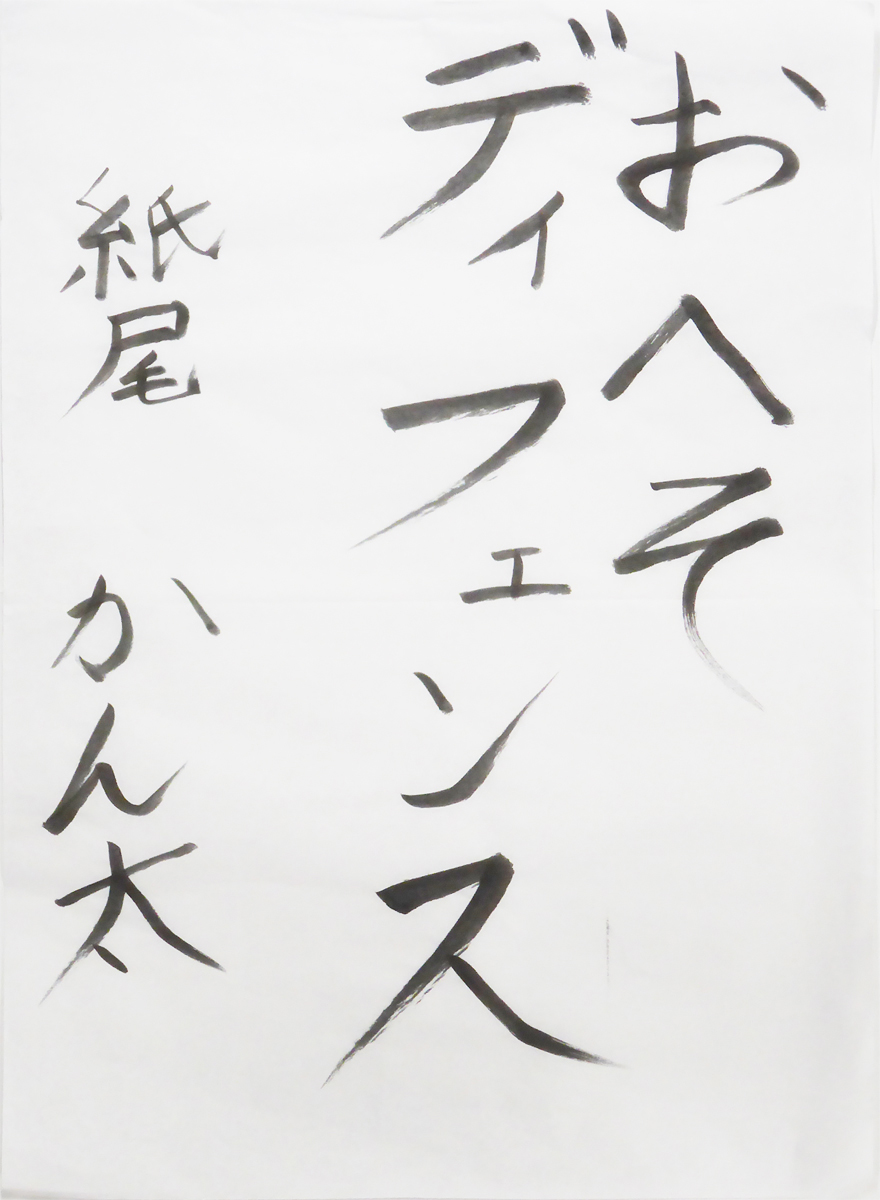 おへそ
ディフェンス
紙尾 かん太